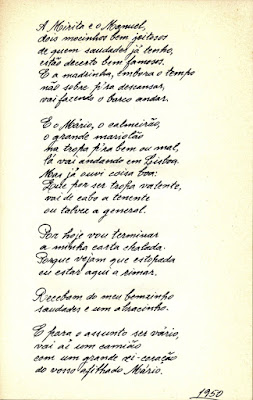 A Mirita e o Manuel,
dois mocinhos bem jeitosos
de quem saudades já tenho,
estão decerto bem famosos.
E a madrinha, embora o tempo
não sobre p'ra descansar,
vai fazendo o barco andar.
E o Mário, o calmeirão,
o grande mariolão
na tropa p'ra bem ou mal,
lá vai andando em Lisboa.
Mas já ouvi coisa boa:
Que por ser tropa valente,
vai de cabo a tenente
ou talvez a general.
Por hoje vou terminar
a minha carta chalada.
Porque vejam que estopada
eu estar aqui a rimar.
Recebam do meu bemzinho
saudades e um abracinho.
E para o assunto ser vário,
vai aí um camião
com um grande xi-coração
do vosso afilhado Mário.
1950